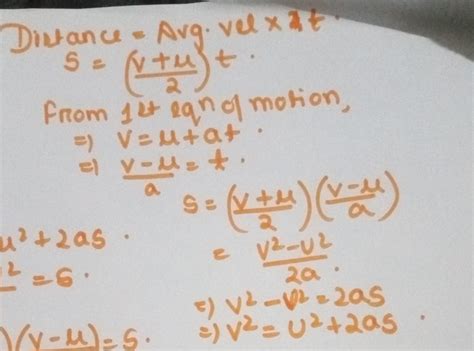 Distance = Avg. vel × t.
S = (v+u/2) t.
From 1st eqn of motion,
=) v = u + at.
=) v-u/a = t.
S = (v+u/2)(v-u/a)
= v²-u²/2a.
=) v² - u² = 2as
=) v² = u² + 2as.
u² + 2as.
² = s.
)(v-u) = s.